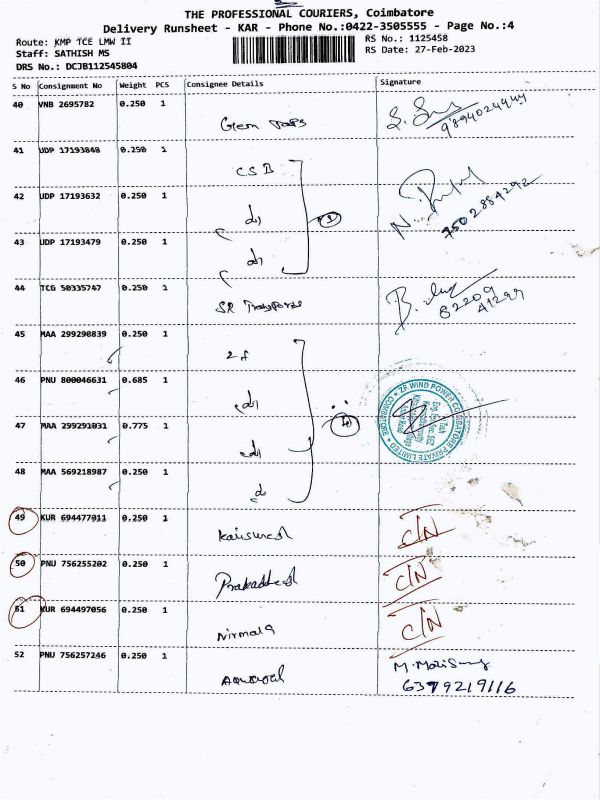 THE PROFESSIONAL COURIERS, Coimbatore
Delivery Runsheet - KAR - Phone No.:0422-3505555 - Page No.:4
Route: KMP TCE LMW II
RS No.: 1125458
Staff: SATHISH MS
RS Date: 27-Feb-2023
DRS No.: DCJB112545804
S No Consignment No Weight PCS Consignee Details Signature
40 VNB 2695782 0.250 1
Gem
9894024944
41 UDP 17193848 0.250 1
CSB
42 UDP 17193632 0.250 1
do
3
7502884292
43 UDP 17193479 0.250 1
do
44 TCG 50335747 0.250 1
SR Transports
82209
41299
45 MAA 299290839 0.250 1
ZF
46 PNU 800046631 0.685 1
do
4
ZF WIND POWER COIMBATORE PRIVATE LIMITED
COIMBATORE
47 MAA 299291031 0.775 1
do
48 MAA 569218987 0.250 1
do
49 KUR 694477011 0.250 1
C/N
50 PNU 756255202 0.250 1
C/N
51 KUR 694497056 0.250 1
Nirmala
C/N
52 PNU 756257246 0.250 1
M.
6379219116